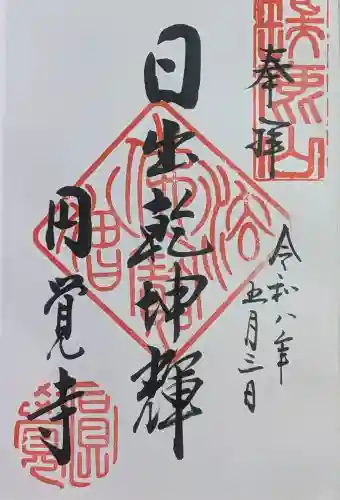 奉拝
令和八年
五月三日
日出乾坤輝
円覚寺
瑞鹿山
佛法僧寶